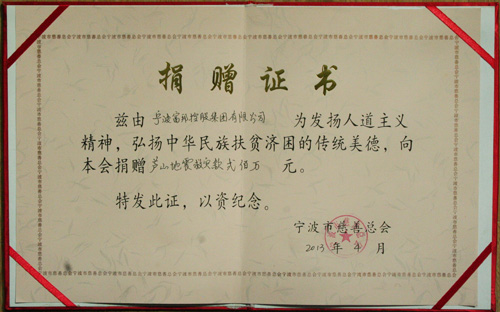 捐赠证书
兹由 宁波富邦控股集团有限公司 为发扬人道主义
精神，弘扬中华民族扶贫济困的传统美德，向
本会捐赠 芦山地震救灾款贰佰万 元。
特发此证，以资纪念。
宁波市慈善总会
2013 年 4 月